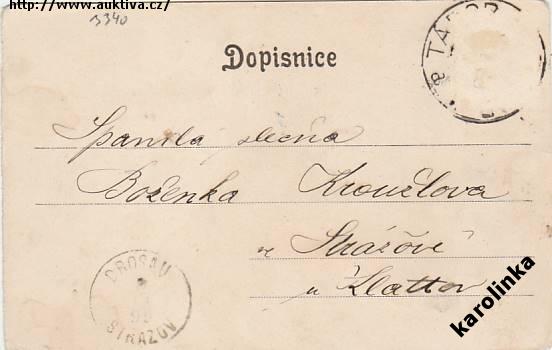 http://www.auktiva.cz/
3340
TÁBOR
Dopisnice
Spanilá slečna
Boženka Kroužilova
v Strážově
u Klattov
DROSAU
STRAZOV
karolinka